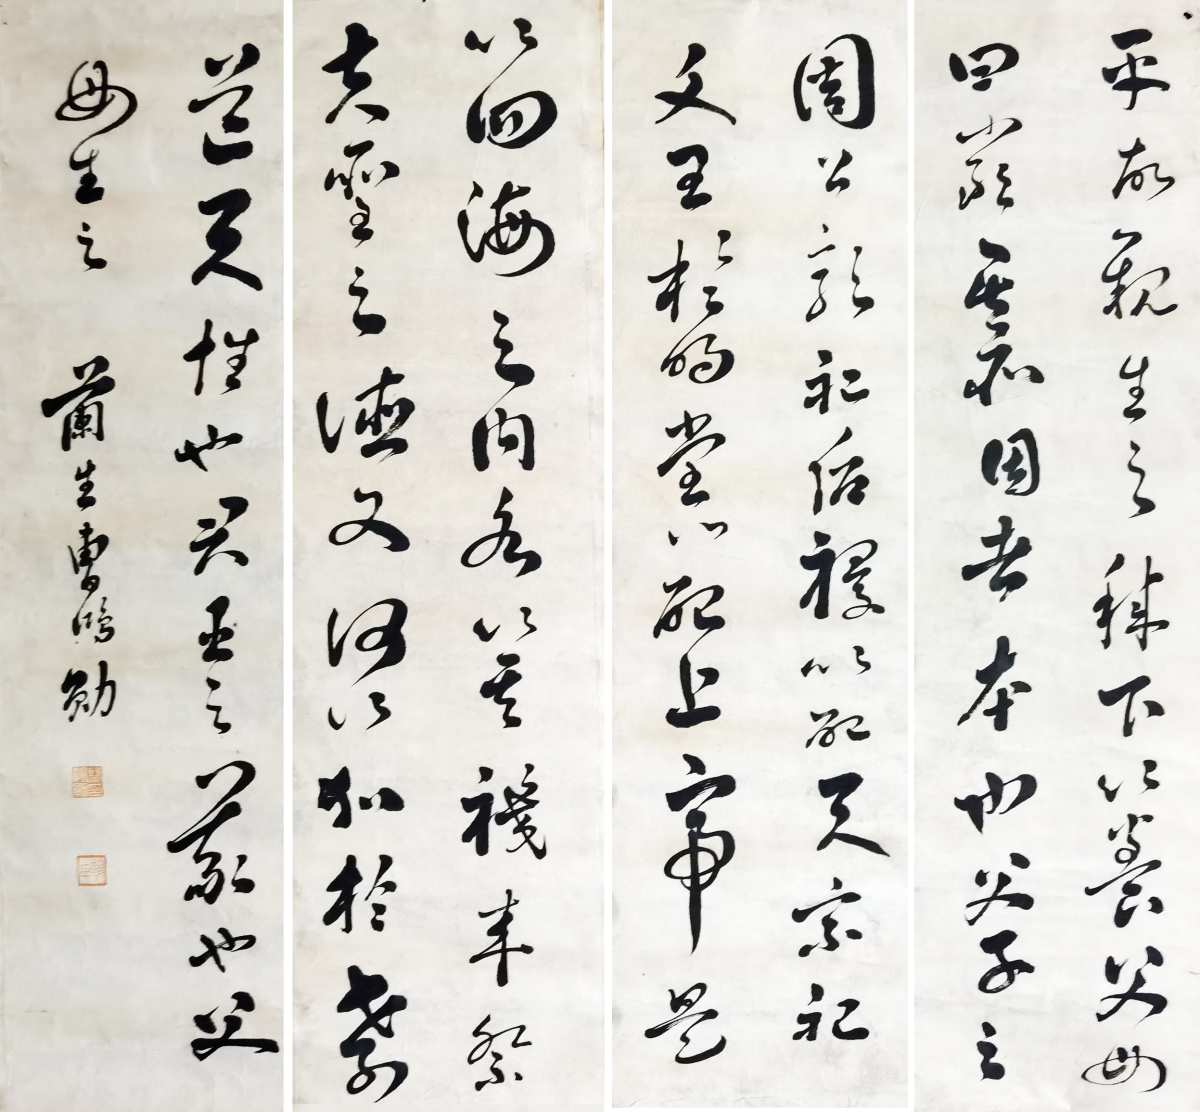 乎故親生之膝下以養父母
日嚴其所因者本也父子之
周公郊祀后稷以配天宗祀
文王於明堂以配上帝是
以四海之内各以其職来祭
夫聖之德又何以加於孝
道天性也君臣之義也父
母生之 蘭生曹鴻勛